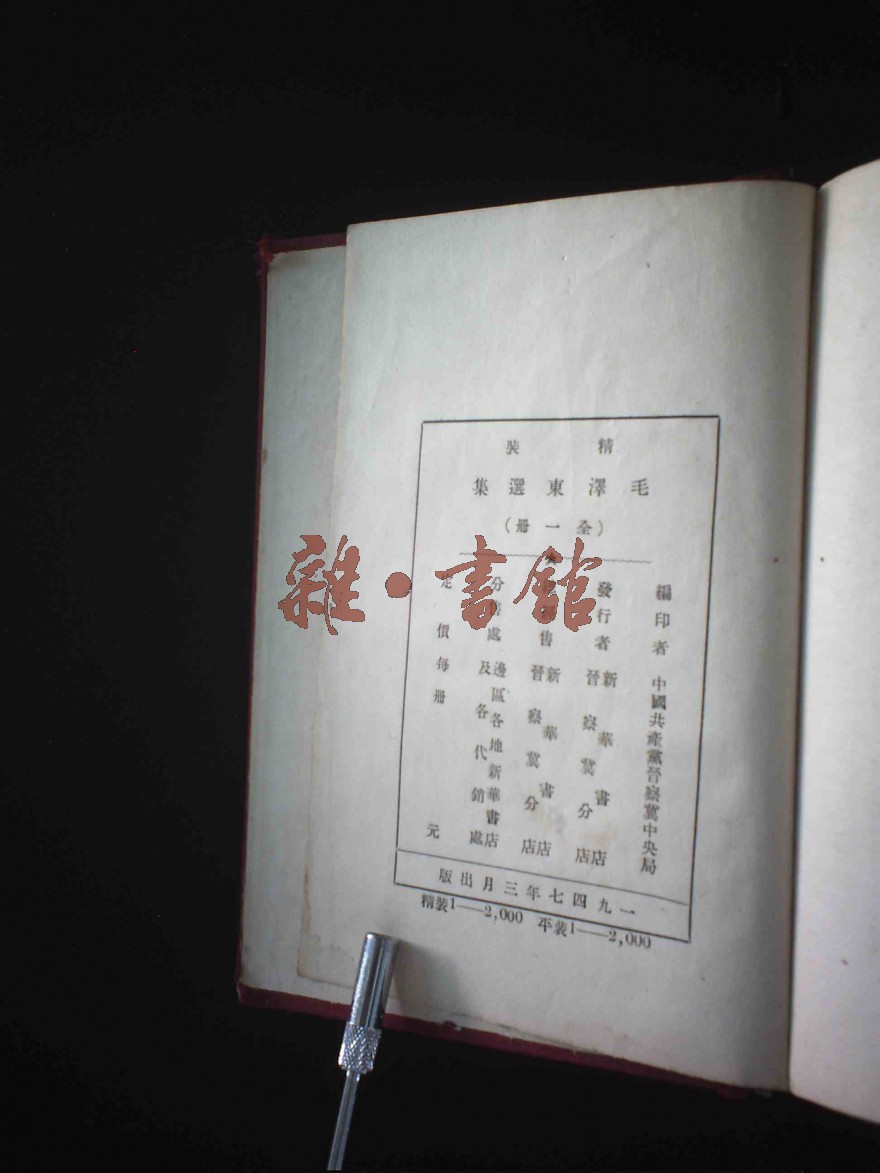 精裝
毛澤東選集
（全一冊）
編印者 中國共產黨晉察冀中央局
發行者 新華書店
晉察冀分店
售 新華書店
晉察冀分店
分售處 邊區各地新華書店
及各代銷處
定價每冊 元
一九四七年三月出版
精裝1——2,000 平裝1——2,000
雜·書館